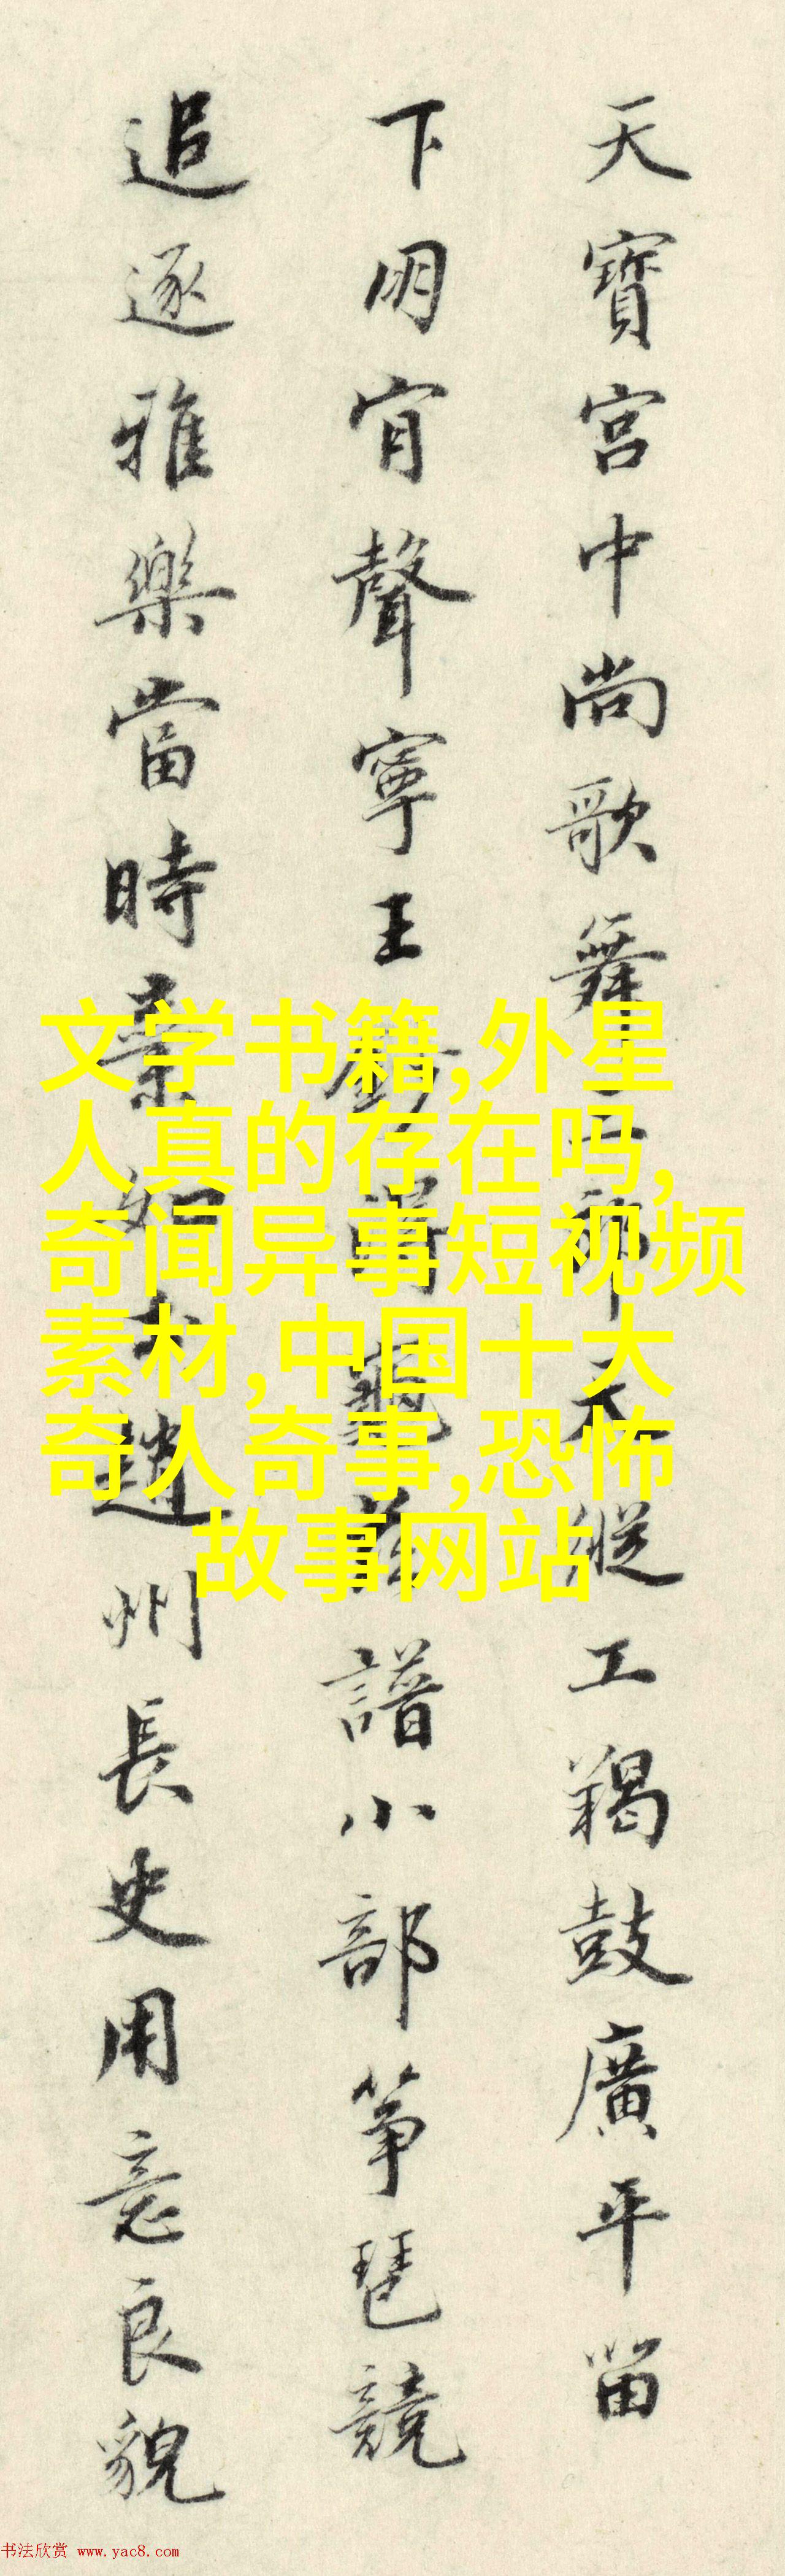 天寶宮中尚歌舞三郎天縱工羯鼓廣平留
下朋肯聲寧王
譜小部箏琶競
追逐雅樂當時棄如土趙州長史用意良貌
文学书籍,外星
人真的存在吗,
奇闻异事短视频
素材,中国十大
奇人奇事,恐怖
故事网站
书法欣赏 www.yac8.com